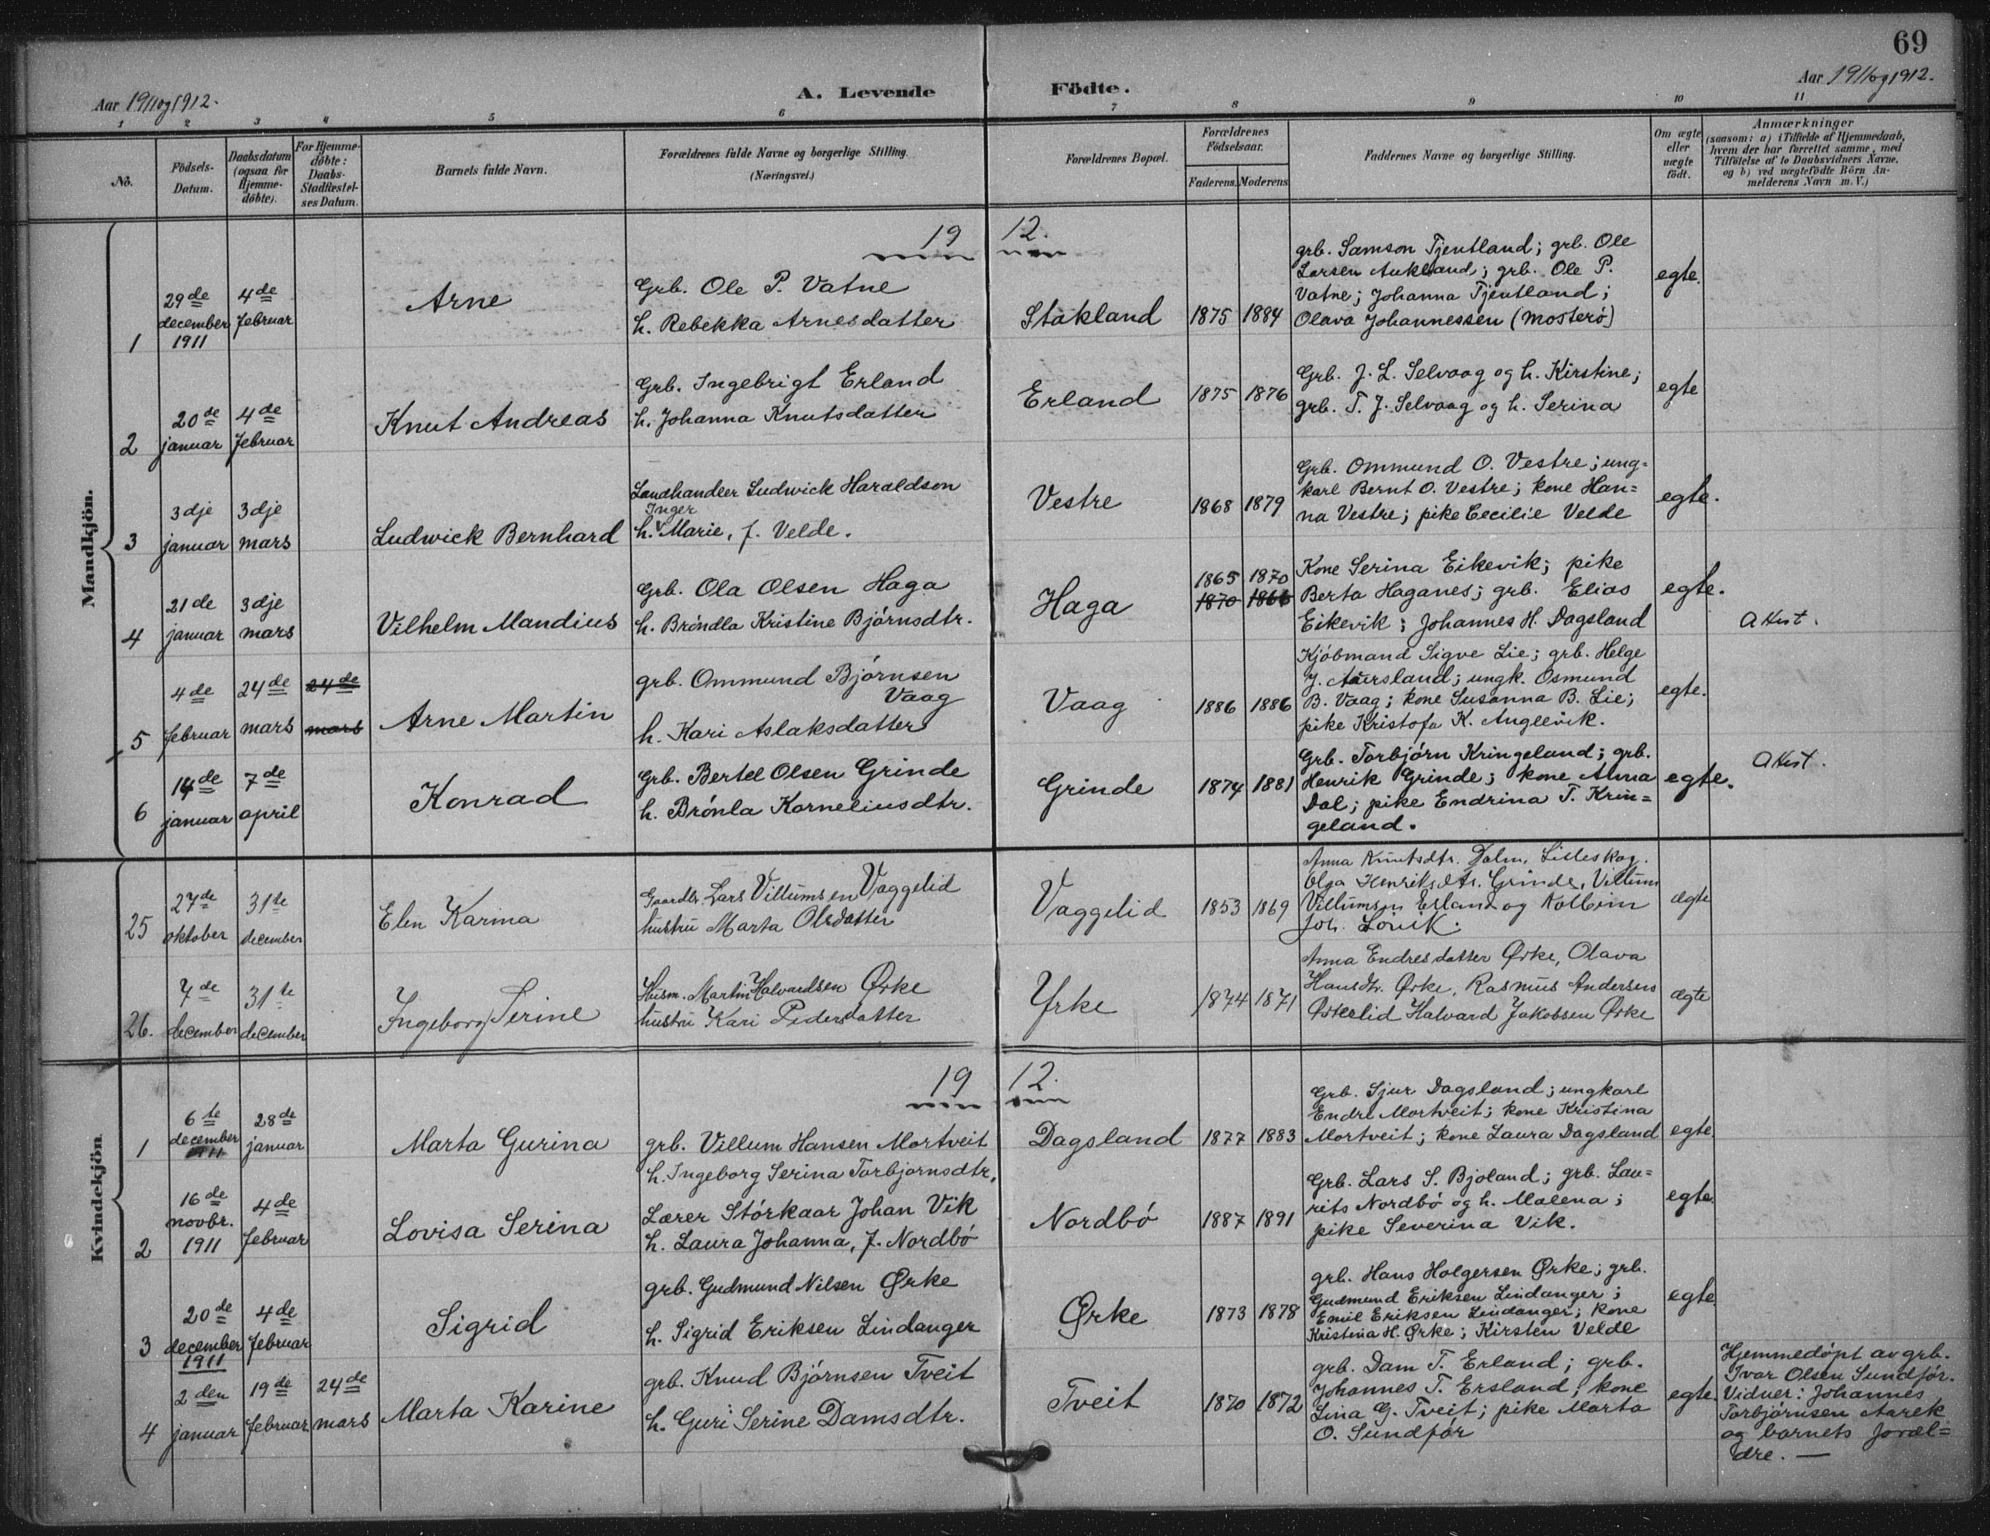 69
Aar 1911 og 1912.
A. Levende Födte.
Aar 1911 og 1912.
1 2 3 4 5 6 7 8 9 10 11
No.
Födsels-
Datum.
Daabsdatum
(ogsaa for
Hjemme-
døbte).
For Hjemme-
døbte:
Daabs-
Stadfæstel-
ses Datum.
Barnets fulde Navn.
Forældrenes fulde Navne og borgerlige Stilling.
(Næringsvei.)
Forældrenes Bopæl.
Forældrenes
Födselsaar.
Faderens. Moderens
Faddernes Navne og borgerlige Stilling.
Om ægte
eller
uægte
födt.
Anmærkninger
(saasom: a) i Tilfælde af Hjemmedaab,
hvem der har forrettet samme, med
Tilföielse af to Daabsvidners Navne,
og b) ved uægtefödte Börn An-
melderens Navn m. V.)
Mandkjön.
19 12.
1
29de
december
1911
4de
februar
Arne
Grb. Ole P. Vatne
h. Rebekka Arnesdatter
Stakland
1875 1884
grb. Samson Tjentland; grb. Ole
Larsen Aukland; grb. Ole P.
Vatne; Johanna Tjentland;
Olava Johannessen (Mosterö)
egte.
2
20de
januar
4de
februar
Knut Andreas
Grb. Ingebrigt Erland
h. Johanna Knutsdatter
Erland
1875 1876
Grb. J. L. Selvaag og h. Kirstine;
grb. T. J. Selvaag og h. Serina
egte
3
3dje
januar
3dje
mars
Ludwick Bernhard
Landhandler Ludwick Haraldson
Inger
h. Marie, f. Velde.
Vestre
1868 1879
Grb. Ommund O. Vestre; ung-
karl Bernt O. Vestre; kone Han=
na Vestre; pike Cecilie Velde
egte.
4
21de
januar
3dje
mars
Vilhelm Mandius
Grb. Ola Olsen Haga
h. Bröndla Kristine Björnsdtr.
Haga
1865 1870
1870 1866
Kone Serina Eikevik; pike
Berta Haganes; grb. Elias
Eikevik; Johannes H. Dagsland
egte.
Attest.
5
4de
februar
24de
mars
24de
mars
Arne Martin
grb. Ommund Björnsen
Vaag
h. Kari Aslaksdatter
Vaag
1886 1886
Kjöbmand Sigve Lie; grb. Helge
J. Aarsland; ungk. Osmund
B. Vaag; kone Susanna B. Lie;
pike Kristofa K. Anglevik.
egte.
6
14de
januar
7de
april
Konrad
Grb. Bertel Olsen Grinde
h. Brönla Korneliusdtr.
Grinde
1874 1881
Grb. Torbjörn Kringeland; grb.
Henrik Grinde; kone Anna
Dal; pike Endrina T. Krin=
geland.
egte.
Attest.
25
27de
oktober
31te
december
Elen Karina
Gaardbr. Lars Villumsen Vaggelid
hustru Marta Olsdatter
Vaggelid
1853 1869
Anna Knutsdtr. Dalm, Lilleskog.
Olga Henriksdtr. Grinde, Villum
Villumsen Erland og Kolbein
Joh. Lövik.
ægte
26.
7de
december
31te
december
Ingeborg Serine
Husm. Martin Halvardsen Ørke
hustru Kari Pedersdatter
Yrke
1874 1871
Anna Endresdatter Ørke, Olava
Hansdtr. Ørke, Rasmus Andersen
Østerlid Halvard Jakobsen Ørke
ægte
Kvindekjön.
19 12.
1
6te
december
1911
28de
januar
Marta Gurina
grb. Villum Hansen Mortveit
h. Ingeborg Serina Torbjornsdtr.
Dagsland
1877 1883
Grb. Sjur Dagsland; ungkarl
Endre Mortveit; kone Kristina
Mortveit; kone Laura Dagsland
egte.
2
16de
novbr.
1911
4de
februar
Lovisa Serina
Lærer Störkaar Johan Vik
h. Laura Johanna, f. Nordbö
Nordbö
1887 1891
Grb. Lars S. Bjoland; grb. Lau-
rits Nordbö og h. Malena;
pike Severina Vik.
egte.
3
20de
december
1911
4de
februar
Sigrid
grb. Gudmund Nilsen Ørke
h. Sigrid Eriksen Lindanger
Ørke
1873 1878
grb. Hans Holgersen Ørke; grb.
Gudmund Eriksen Lindanger;
Emil Eriksen Lindanger; kone
Kristina H. Ørke; Kirsten Velde
egte.
4
2den
januar
19de
februar
24de
mars
Marta Karine
grb. Knud Björnsen Tveit
h. Guri Serine Damsdtr.
Tveit
1870 1872
grb. Dam T. Erland; grb.
Johannes T. Ersland; kone
Lina G. Tveit; pike Marta
O. Sundför
egte.
Hjemmedöpt av grb.
Ivar Olsen Sundför.
Vidner: Johannes
Torbjörnsen Aarek
og barnets foræl=
dre. —